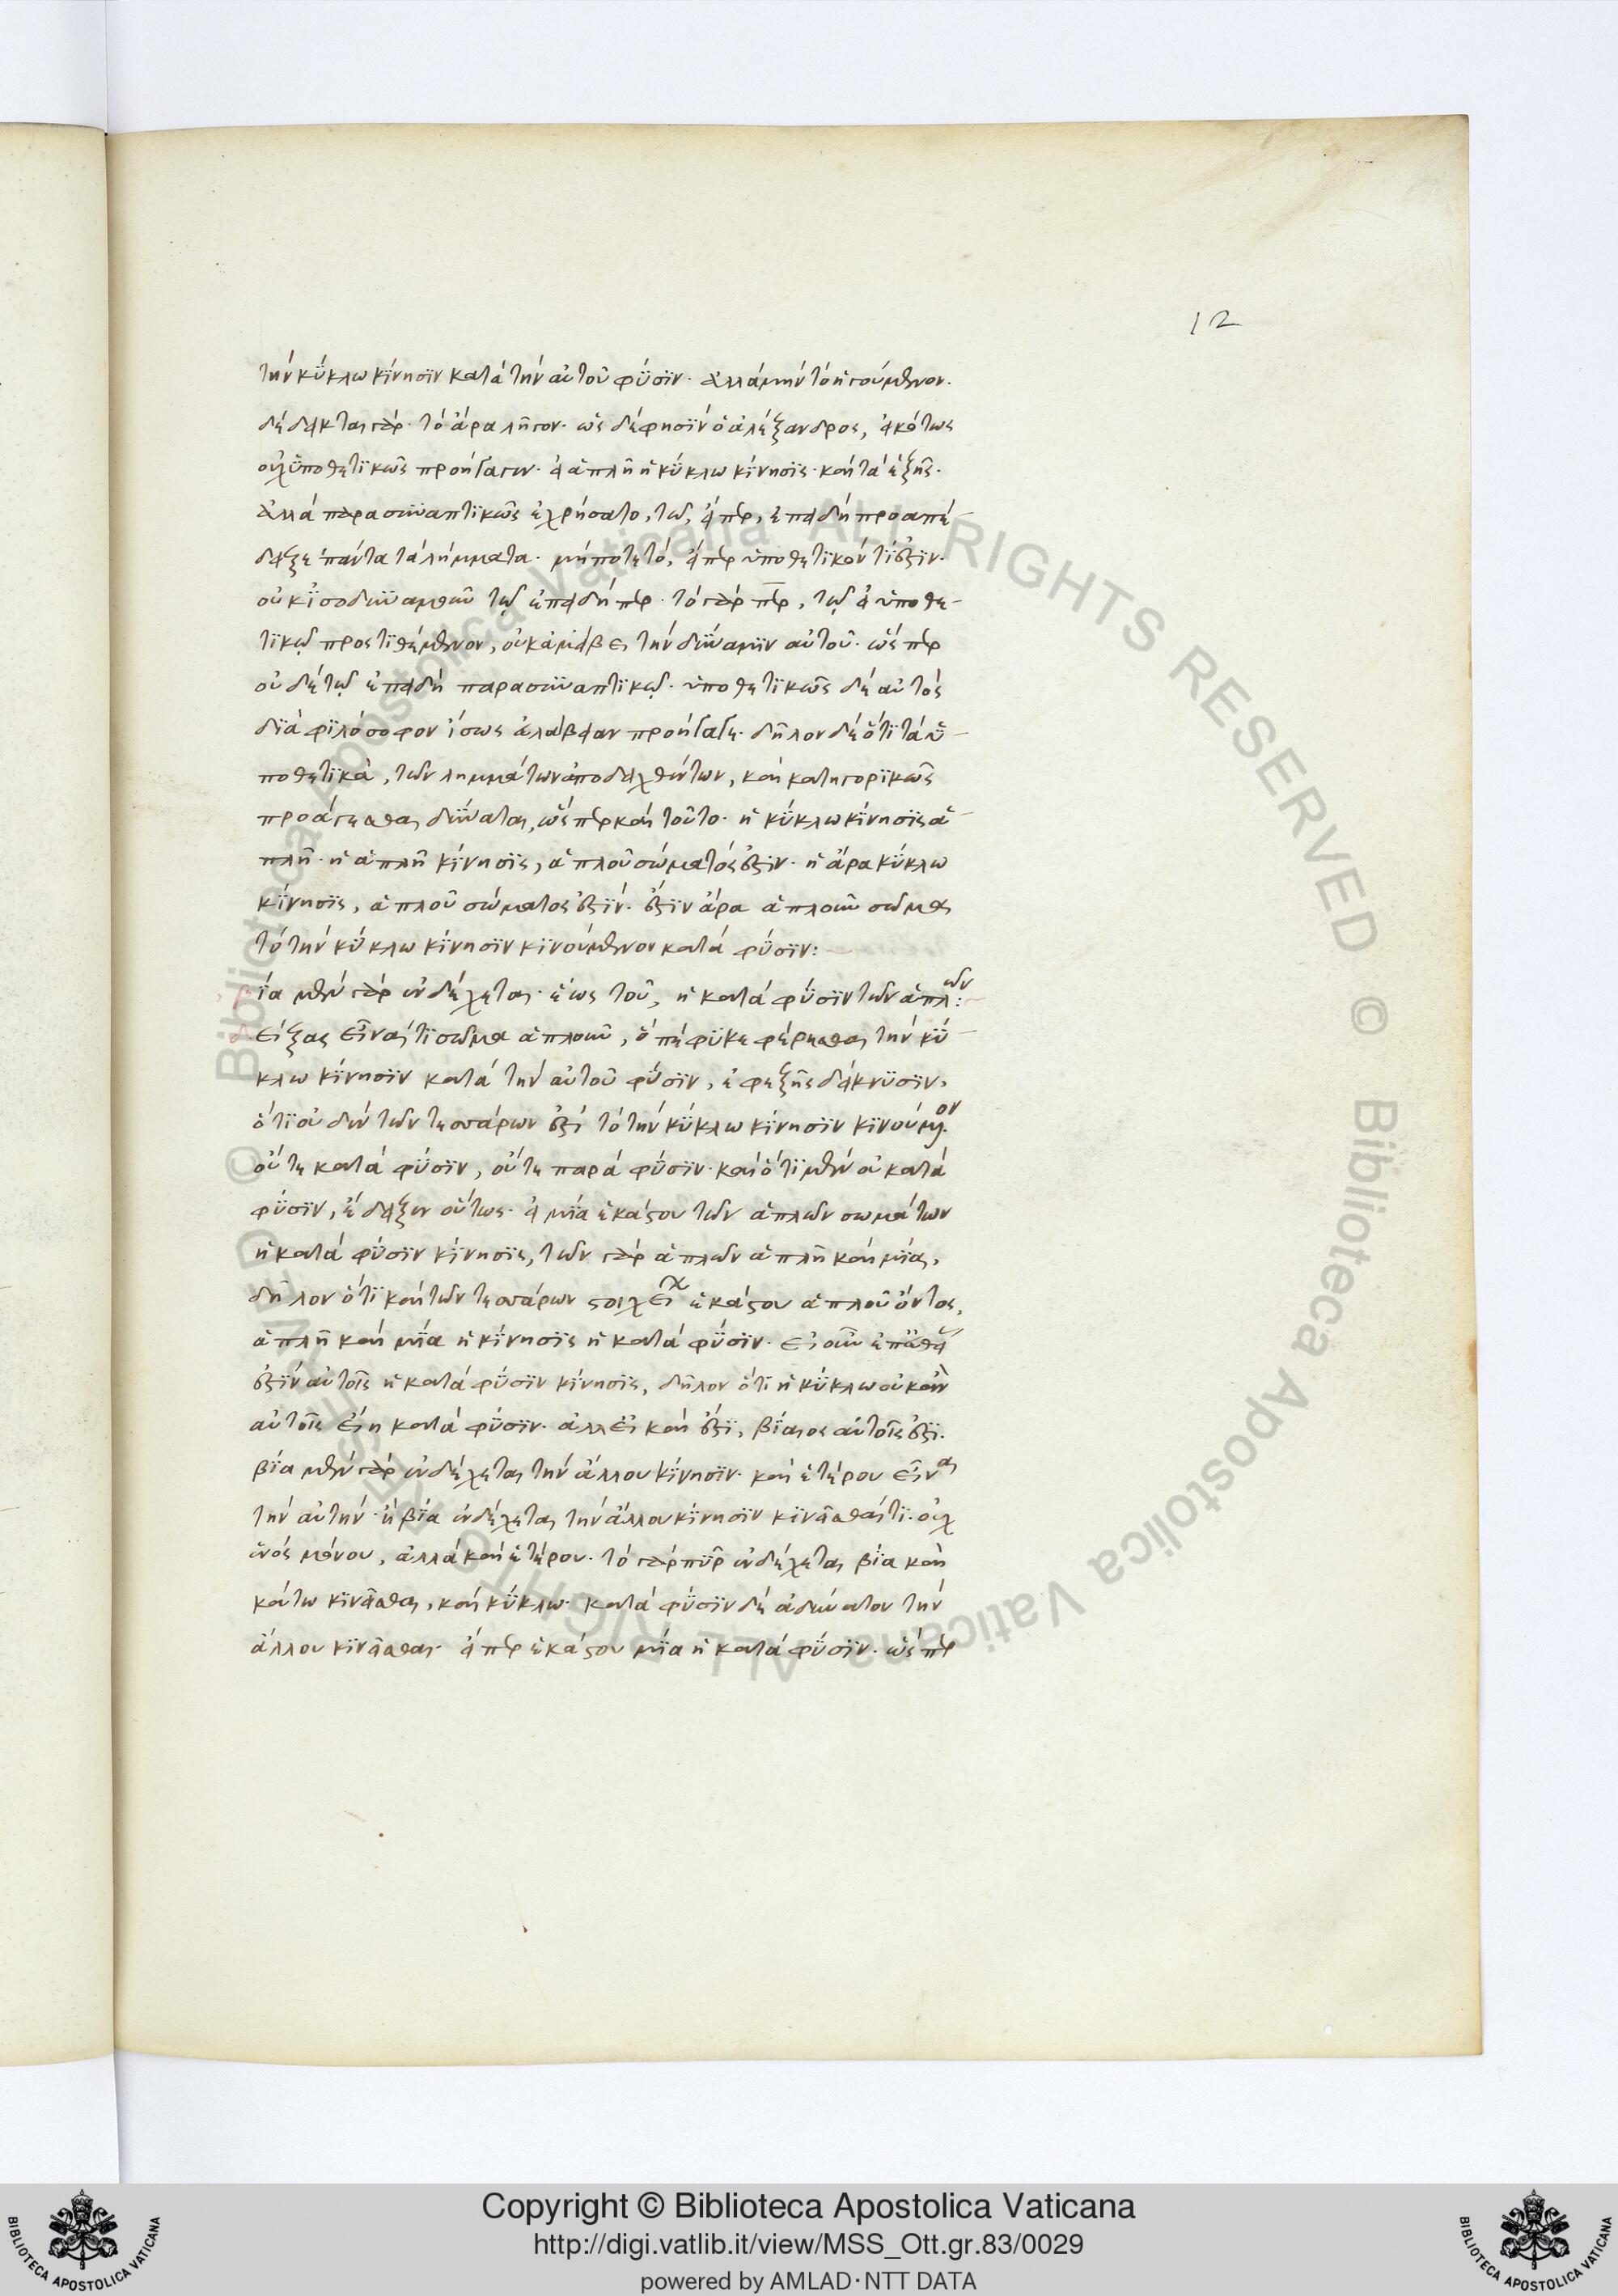 12
τὴν κύκλω κίνησιν κατὰ τὴν αὐτοῦ φύσιν· ἀλλὰ μὴν τὸ ἡγούμενον·
δέδεικται γάρ· τὸ ἄρα λῆγον· ὡς δέ φησιν ὁ ἀλέξανδρος, εἰκότως
οὐχ ὑποθετικῶς προήγαγεν· εἰ ἁπλῆ ἡ κύκλω κίνησις· καὶ τὰ ἑξῆς·
ἀλλὰ παρασυναπτικῶς ἐχρήσατο, τῶ, εἴπερ, ἐπειδὴ προαπέ-
δειξε πάντα τὰ λήμματα· μήποτε τὸ, εἴπερ ὑποθετικόν τί ἐστιν·
οὐκ ἰσοδυναμοῦν τῷ ἐπειδήπερ· τὸ γὰρ περ, τῷ εἰ ὑποθε-
τικῷ προστιθέμενον, οὐκ ἀμείβει τὴν δύναμιν αὐτοῦ· ὥσπερ
οὐδὲ τῷ ἐπειδὴ παρασυναπτικῷ· ὑποθετικῶς δὲ αὐτὸς
διὰ φιλόσοφον ἴσως εὐλάβειαν προήγαγε· δῆλον δὲ ὅτι τὰ ὑ-
ποθετικὰ, τῶν λημμάτων ἀποδειχθέντων, καὶ κατηγορικῶς
προάγεσθαι δύναται, ὥσπερ καὶ τοῦτο· ἡ κύκλω κίνησις ἁ-
πλῆ· ἡ ἁπλῆ κίνησις, ἁπλοῦ σώματός ἐστιν· ἡ ἄρα κύκλω
κίνησις, ἁπλοῦ σώματος ἐστίν· ἔστιν ἄρα ἁπλοῦν σῶμα
τὸ τὴν κύκλω κίνησιν κινούμενον κατὰ φύσιν:
βία μὲν γὰρ ἐνδέχεται· ἕως τοῦ, ἡ κατὰ φύσιν τῶν ἁπλῶν:
δείξας εἶναί τι σῶμα ἁπλοῦν, ὃ πέφυκε φέρεσθαι τὴν κύ-
κλω κίνησιν κατὰ τὴν αὐτοῦ φύσιν, ἐφεξῆς δείκνυσιν,
ὅτι οὐδὲν τῶν τεσσάρων ἐστὶ τὸ τὴν κύκλω κίνησιν κινούμενον·
οὔτε κατὰ φύσιν, οὔτε παρὰ φύσιν· καὶ ὅτι μὲν οὐ κατὰ
φύσιν, ἔδειξεν οὕτως· εἰ μία ἑκάστου τῶν ἁπλῶν σωμάτων
ἡ κατὰ φύσιν κίνησις, τῶν γὰρ ἁπλῶν ἁπλῆ καὶ μία,
δῆλον ὅτι καὶ τῶν τεσσάρων στοιχείων ἑκάστου ἁπλοῦ ὄντος,
ἁπλῆ καὶ μία ἡ κίνησις ἡ κατὰ φύσιν· εἰ οὖν ἐπ' εὐθείας
ἐστὶν αὐτοῖς ἡ κατὰ φύσιν κίνησις, δῆλον ὅτι ἡ κύκλω οὐκ ἂν
αὐτοῖς εἴη κατὰ φύσιν· ἀλλ' εἰ καὶ ἔστι, βίαιος αὐτοῖς ἐστι·
βία μὲν γὰρ ἐνδέχεται τὴν ἄλλου κίνησιν· καὶ ἑτέρου εἶναι
τὴν αὐτὴν· ἢ βία ἐνδέχεται τὴν ἄλλου κίνησιν κινεῖσθαί τι· οὐχ
ἑνὸς μόνου, ἀλλὰ καὶ ἑτέρου· τὸ γὰρ πῦρ ἐνδέχεται βία καὶ
κάτω κινεῖσθαι, καὶ κύκλω· κατὰ φύσιν δὲ ἀδύνατον τὴν
ἄλλου κινεῖσθαι· εἴπερ ἑκάστου μία ἡ κατὰ φύσιν· ὥσπερ
Copyright © Biblioteca Apostolica Vaticana
http://digi.vatlib.it/view/MSS_Ott.gr.83/0029
powered by AMLAD·NTT DATA
© Biblioteca Apostolica Vaticana ALL RIGHTS RESERVED
© Biblioteca Apostolica Vaticana ALL RIGHTS RESERVED
BIBLIOTECA APOSTOLICA VATICANA
BIBLIOTECA APOSTOLICA VATICANA